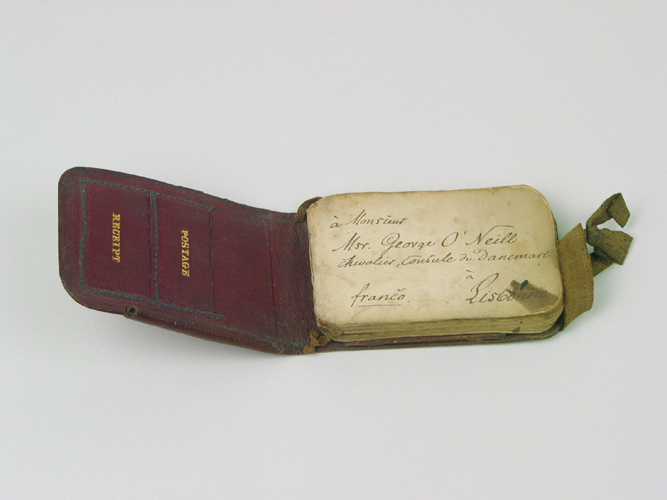 RECEIPT
POSTAGE
à Monsieur
Msr. George O'Neill
Chevalier, Consule du Danemarc
à
franco. Lisbonne